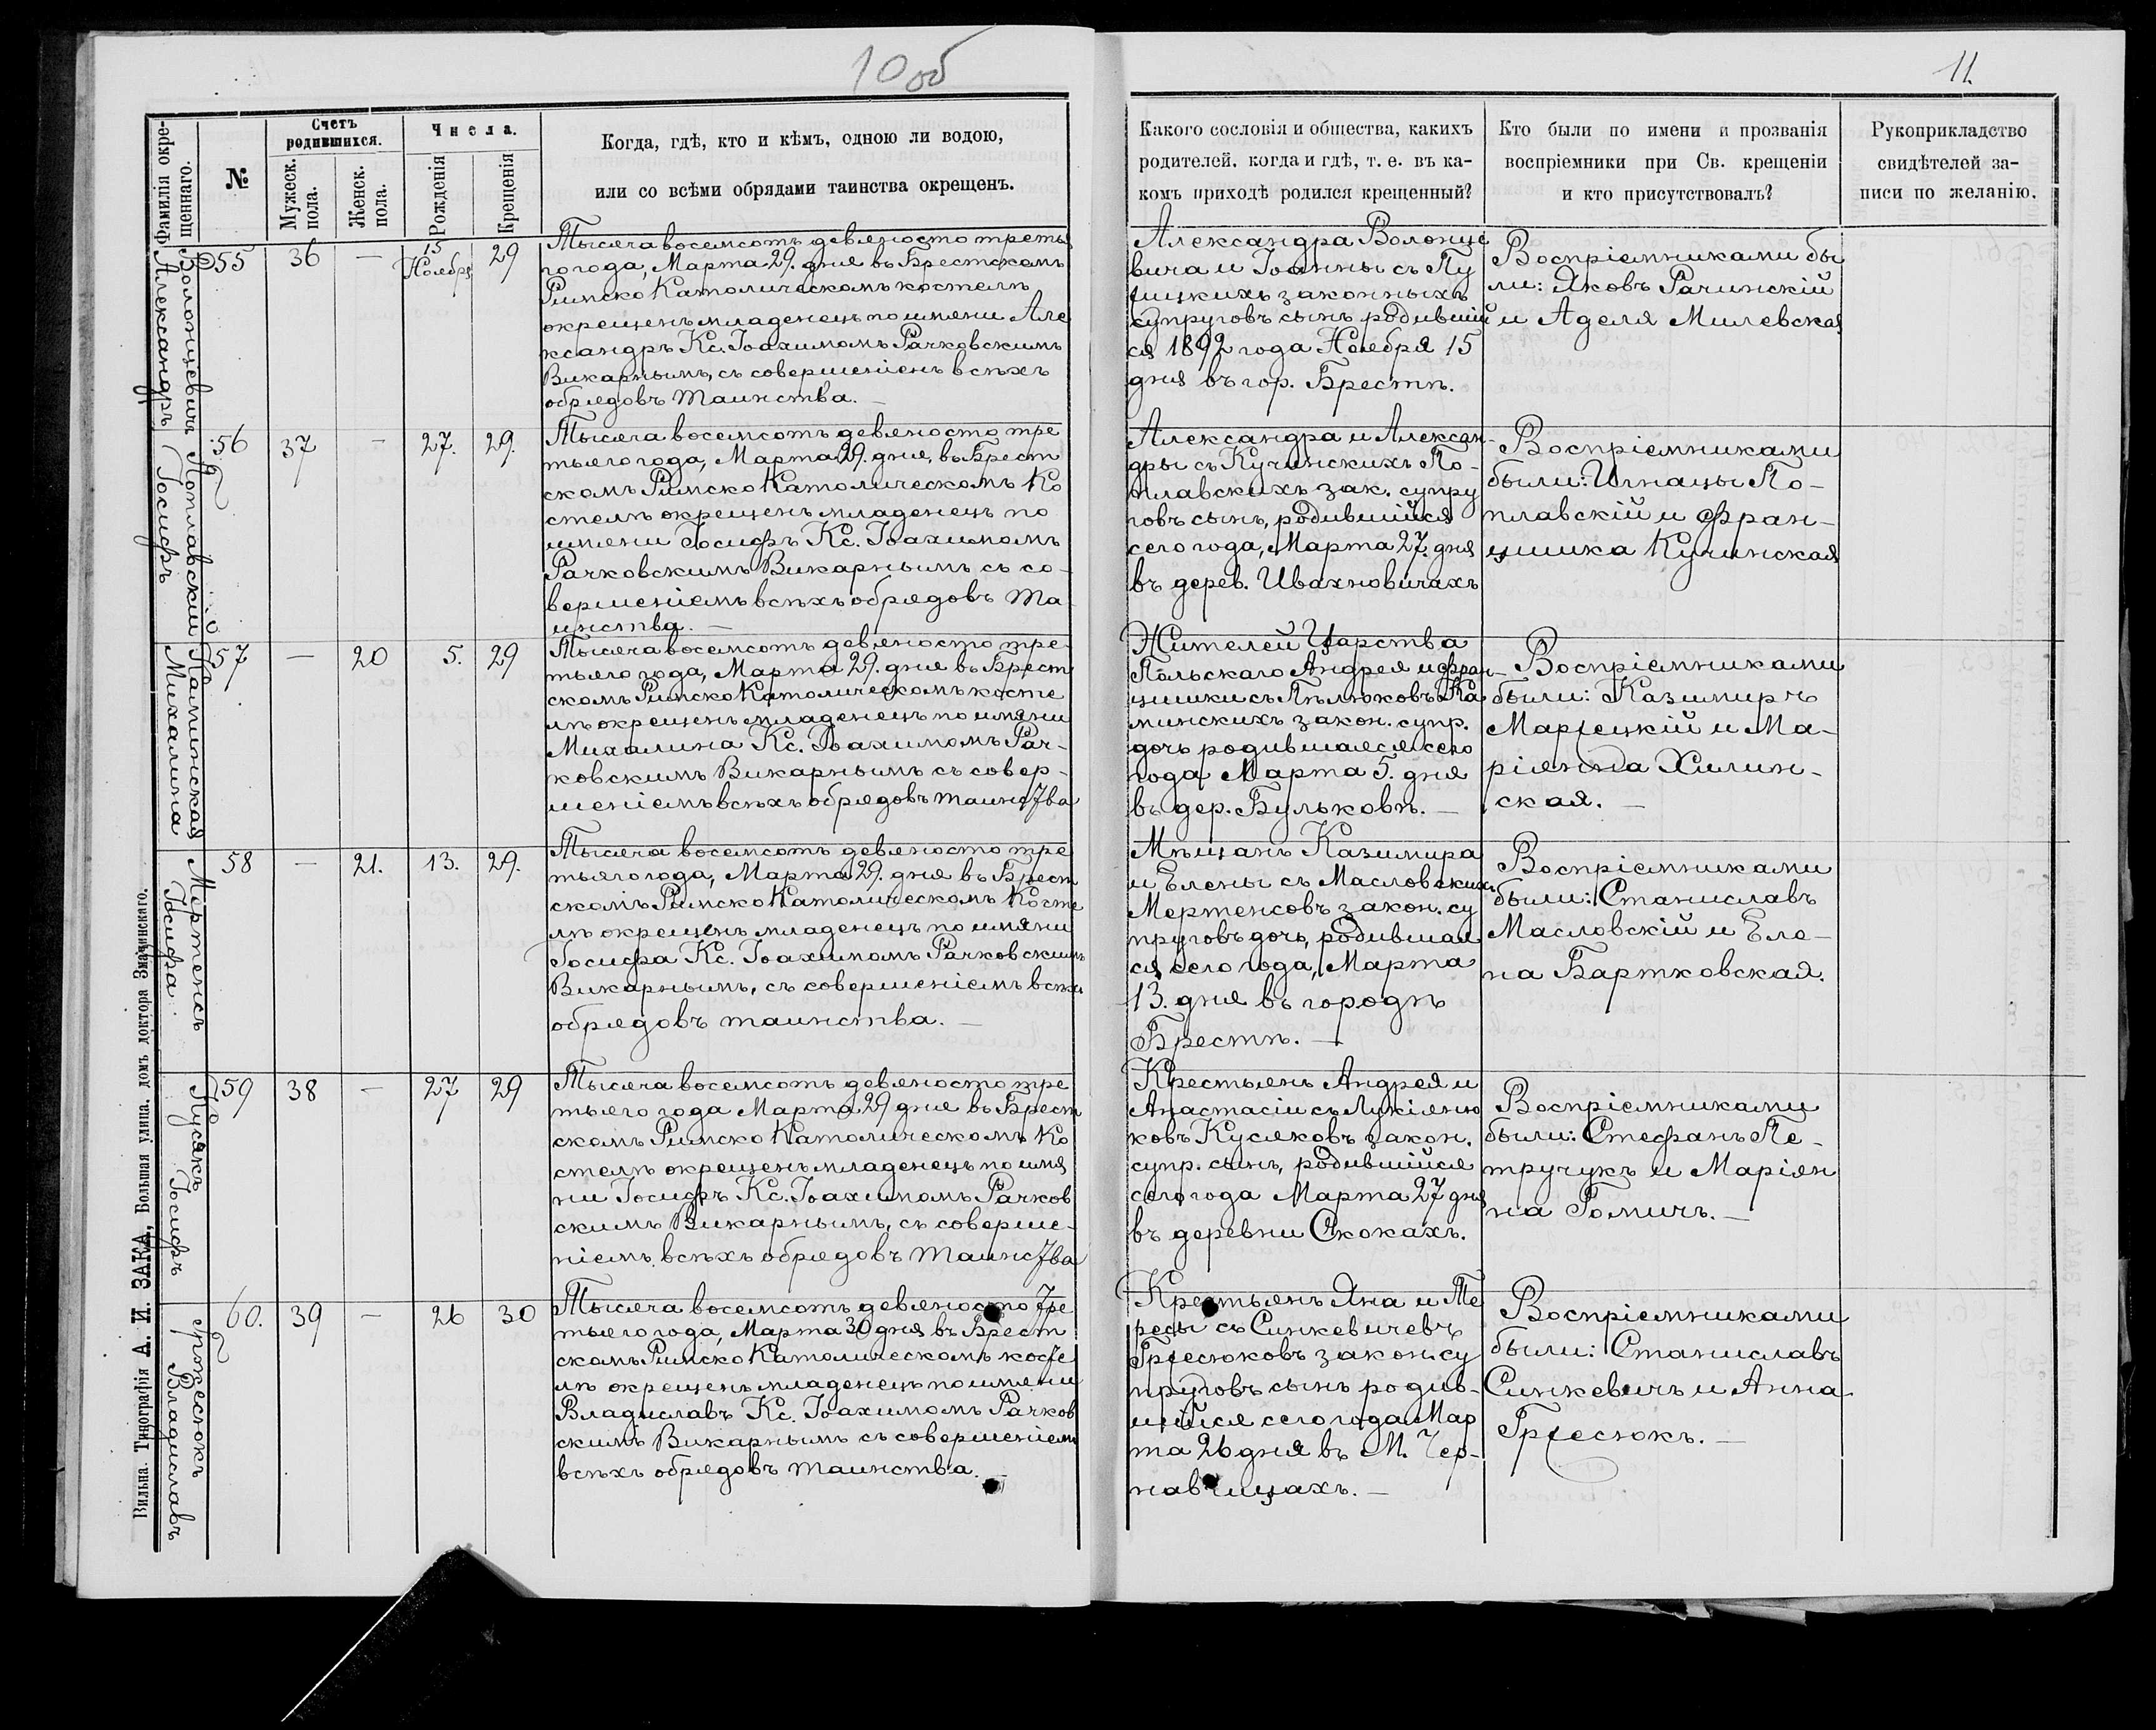 10 об
11.
Фамилія окре-
щеннаго.
№
Счетъ
родившихся.
Мужеск.
пола.
Женск.
пола.
Числа.
Рожденія
Крещенія
Когда, гдѣ, кто и кѣмъ, одною ли водою,
или со всѣми обрядами таинства окрещенъ.
Какого сословія и общества, какихъ
родителей, когда и гдѣ, т. е. въ ка-
комъ приходѣ родился крещенный?
Кто были по имени и прозванія
воспріемники при Св. крещеніи
и кто присутствовалъ?
Рукоприкладство
свидѣтелей за-
писи по желанію.
Волонцевичъ
Александръ
55
36
—
15
Ноября
29
Тысяча восемсотъ девяносто треть
го года, Марта 29. дня въ Брестскомъ
Римско Католическомъ костелѣ
окрещенъ младенецъ по имени Але
ксандръ Кс. Іоахимомъ Рачковскимъ
Викарнымъ, съ совершеніемъ всѣхъ
обрядовъ Таинства. —
Александра Волонце
вича и Іоанны съ Пу
законныхъ
супруговъ сынъ родившій
ся 1892 года Ноября 15
дня въ гор. Брестѣ.
Воспріемниками бы
ли: Яковъ Рачинскій
и Аделя Милевская
Поплавскій
Іосифъ
56
37
—
27.
29.
Тысяча восемсотъ девяносто тре
тьяго года, Марта 29. дня, въ Брест
скомъ Римско Католическомъ Ко
стелѣ окрещенъ младенецъ по
имени Іосифъ Кс. Іоахимомъ
Рачковскимъ Викарнымъ съ со-
вершеніемъ всѣхъ обрядовъ Та
инства. —
Александра и Алексан-
дры съ Кучинскихъ По-
плавскихъ зак. супру
говъ сынъ, родившійся
сего года, Марта 27. дня
въ дерев. Ивахновичахъ
Воспріемниками
были: Игнацы По-
плавскій и Фран-
цишка Кучинская
Каминская
Михалина
57
—
20
5.
29
Тысяча восемсотъ девяносто тре-
тьяго года, Марта 29. дня въ Брест
скомъ Римско Католическомъ косте
лѣ окрещенъ младенецъ по имяни
Михалина Кс. Іоахимомъ Рач-
ковскимъ Викарнымъ съ совер-
шеніемъ всѣхъ обрядовъ таинства
Жителей Царства
Польскаго Андрея и Фран-
цишки съ Ка
минскихъ закон. супр.
дочь родившаяся сего
года Марта 5. дня
въ дер. Бульковѣ. —
Воспріемниками
были: Казимиръ
и Ма-
ріянна Хилин-
ская. —
Мертенсъ
Іосифа
58
—
21.
13.
29.
Тысяча восемсотъ девяносто тре
тьяго года, Марта 29. дня въ Брест
скомъ Римско Католическомъ Косте
лѣ окрещенъ младенецъ по имяни
Іосифа Кс. Іоахимомъ Рачковскимъ
Викарнымъ, съ совершеніемъ всѣхъ
обрядовъ таинства. —
Мѣщанъ Казимира
и Елены съ Масловскихъ
Мертенсовъ закон. су
пруговъ дочь, родившая
ся сего года, Марта
13. дня въ городѣ
Брестѣ. —
Воспріемниками
были: Станиславъ
Масловскій и Еле-
на Бартковская.
Кусякъ
Іосифъ
59
38
—
27
29
Тысяча восемсотъ девяносто тре
тьяго года Марта 29 дня въ Брест
скомъ Римско Католическомъ Ко
стелѣ окрещенъ младенецъ по имя
ни Іосифъ Кс. Іоахимомъ Рачков
скимъ Викарнымъ, съ соверше-
ніемъ всѣхъ обрядовъ Таинства
Крестьянъ Андрея и
Анастасіи съ Лукіяню
ковъ Кусяковъ закон.
супр. сынъ, родившійся
сего года Марта 27 дня
въ деревни Скокахъ.
Воспріемниками
были: Стефанъ Пе-
тручукъ и Маріян
на Гомичъ. —
Гржесюкъ
Владиславъ
60.
39
—
26
30
Тысяча восемсотъ девяносто тре
тьяго года, Марта 30 дня въ Брест
скомъ Римско Католическомъ косте
лѣ окрещенъ младенецъ по имени
Владиславъ Кс. Іоахимомъ Рачков
скимъ Викарнымъ съ совершеніемъ
всѣхъ обрядовъ таинства. —
Крестьянъ Яна и Те
ресы съ Синкевичевъ
Гржесюковъ закон. су
пруговъ сынъ родив-
шійся сего года Мар
та 26 дня въ М. Чер-
навчицахъ. —
Воспріемниками
были: Станиславъ
Синкевичъ и Анна
Гржесюкъ. —
Вильна. Типографія А. И. ЗАКА, Большая улица, домъ доктора Значинскаго.